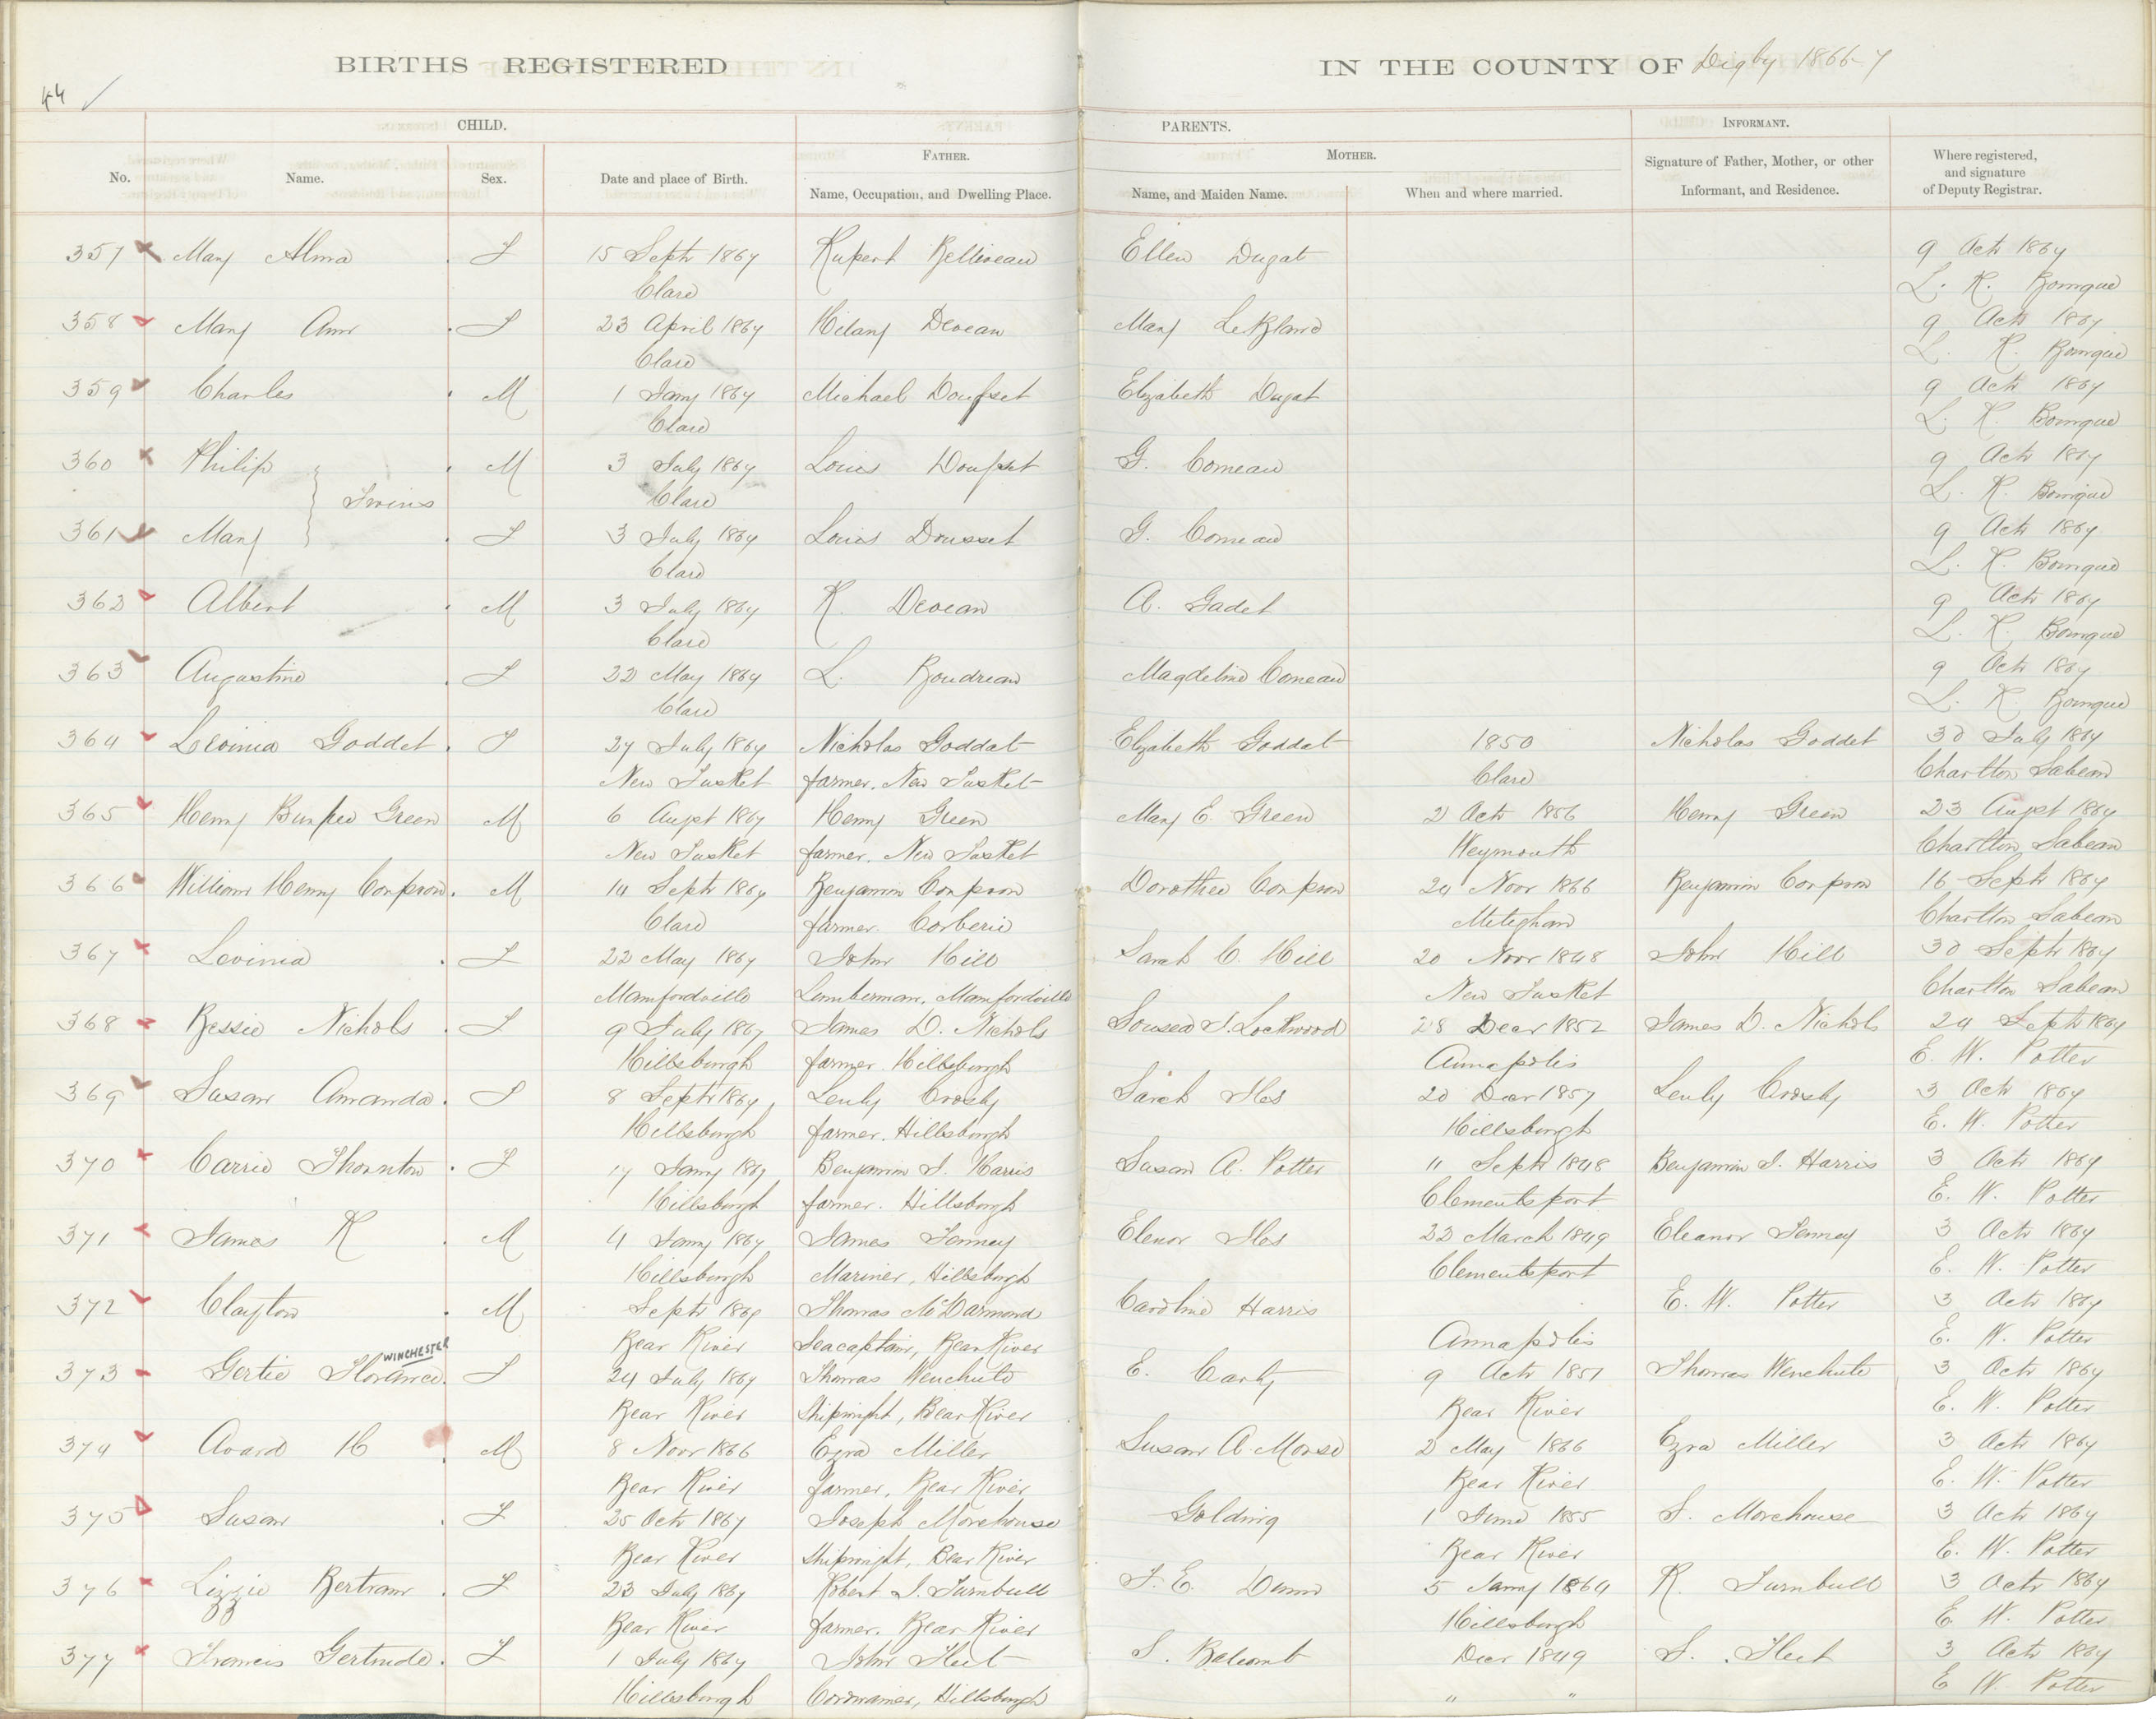 BIRTHS REGISTERED IN THE COUNTY OF Digby 1866-7
44
CHILD. PARENTS. INFORMANT.
FATHER. MOTHER.
No. Name. Sex. Date and place of Birth. Name, Occupation, and Dwelling Place. Name, and Maiden Name. When and where married. Signature of Father, Mother, or other Informant, and Residence. Where registered, and signature of Deputy Registrar.
357 Mary Alma F 15 Septr 1867 Rupert Belliveau Ellen Dugat 9 Octr 1867
Clare L. R.
358 Mary Ann F 23 April 1867 Hilary Deveau Mary LeBlanc 9 Octr 1867
Clare L. R.
359 Charles M 1 Jany 1867 Michael Doufset Elizabeth Dugat 9 Octr 1867
Clare L. R.
360 Philip M 3 July 1867 Louis Doufset G. Comeau 9 Octr 1867
Twins Clare L. R.
361 Mary F 3 July 1867 Louis Dousset G. Comeau 9 Octr 1867
Clare L. R.
362 Albert M 3 July 1867 R. Deveau A. Gadet 9 Octr 1867
Clare L. R.
363 Augustine F 22 May 1867 L. Boudreau Magdeline Comeau 9 Octr 1867
Clare L. R.
364 Levinia Goddet F 27 July 1867 Nicholas Goddat Elizabeth Goddat 1850 Nicholas Goddet 30 July 1867
New Tusket farmer. New Tusket Clare Charlton Sabean
365 Henry Green M 6 Augst 1867 Henry Green Mary E. Green 2 Octr 1856 Henry Green 23 Augst 1867
New Tusket farmer. New Tusket Weymouth Charlton Sabean
366 William Henry Conpron M 14 Septr 1867 Benjamin Conpron Dorothee Conpron 24 Novr 1866 Benjamin Conpron 16 Septr 1867
Clare farmer. Corberie Meteghan Charlton Sabean
367 Levinia F 22 May 1867 John Hill Sarah C. Hill 20 Novr 1848 John Hill 30 Septr 1867
Mamfordville Lumberman, Mamfordville New Tusket Charlton Sabean
368 Bessie Nichols F 9 July 1867 James D. Nichols Lockwood 28 Decr 1852 James D. Nichols 24 Septr 1867
Hillsburgh farmer. Hillsburgh Annapolis E. W. Potter
369 Susan Amanda F 8 Septr 1867 Crosby Sarah Iles 20 Decr 1857 Crosby 3 Octr 1867
Hillsburgh farmer. Hillsburgh Hillsburgh E. W. Potter
370 Carrie Thornton F 17 Jany 1867 Benjamin J. Harris Susan A. Potter 11 Septr 1848 Benjamin J. Harris 3 Octr 1867
Hillsburgh farmer. Hillsburgh Clementsport E. W. Potter
371 James R M 4 Jany 1867 James Tenney Elenor Iles 22 March 1849 Eleanor Tenney 3 Octr 1867
Hillsburgh Mariner, Hillsburgh Clementsport E. W. Potter
372 Clayton M Septr 1867 Thomas McDarmond Caroline Harris E. W. Potter 3 Octr 1867
Bear River Seacaptain, Bear River Annapolis E. W. Potter
WINCHESTER
373 Gertie Florance F 24 July 1867 Thomas Wenchute E. Carty 9 Octr 1851 Thomas Wenchute 3 Octr 1867
Bear River Shipwright, Bear River Bear River E. W. Potter
374 Avard H M 8 Novr 1866 Ezra Miller Susan A. Morse 2 May 1866 Ezra Miller 3 Octr 1867
Bear River farmer, Bear River Bear River E. W. Potter
375 Susan F 25 Octr 1867 Joseph Morehouse Golding 1 June 1855 J. Morehouse 3 Octr 1867
Bear River Shipwright, Bear River Bear River E. W. Potter
376 Lizzie Bertram F 23 July 1867 Robert J. Turnbull F. E. Dunn 5 Jany 1864 R. Turnbull 3 Octr 1867
Bear River farmer. Bear River Hillsburgh E. W. Potter
377 Francis Gertrude F 1 July 1867 John Fleet S. Balcomb Decr 1849 S. Fleet 3 Octr 1867
Hillsburgh Cordwainer, Hillsburgh " " E W. Potter